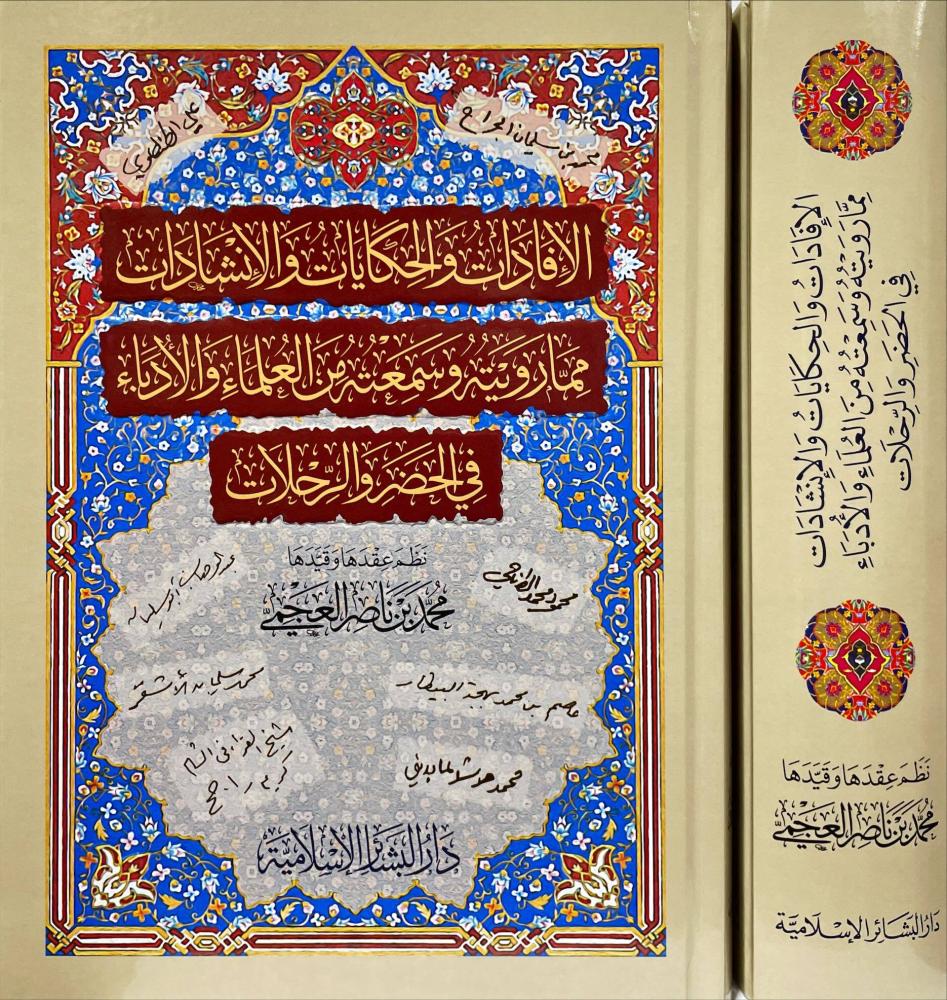 محمد بن سليمان الجراح
علي الطنطاوي
الإفادات والحكايات والإنشادات
ممّا رويته وسمعته من العلماء والأدباء
في الحضر والرّحلات
نظم عقدها وقيّدها
محمّد بن ناصر العجمي
محمد سليمان الأشقر
عاصم بن محمد بهجة البيطار
شيخ القراء في الشام
كريم راجح
محمد
دار البشائر الإسلاميّة
الإفادات والحكايات والإنشادات
ممّا رويته وسمعته من العلماء والأدباء
في الحضر والرّحلات
نظم عقدها وقيّدها
محمّد بن ناصر العجمي
دار البشائر الإسلاميّة